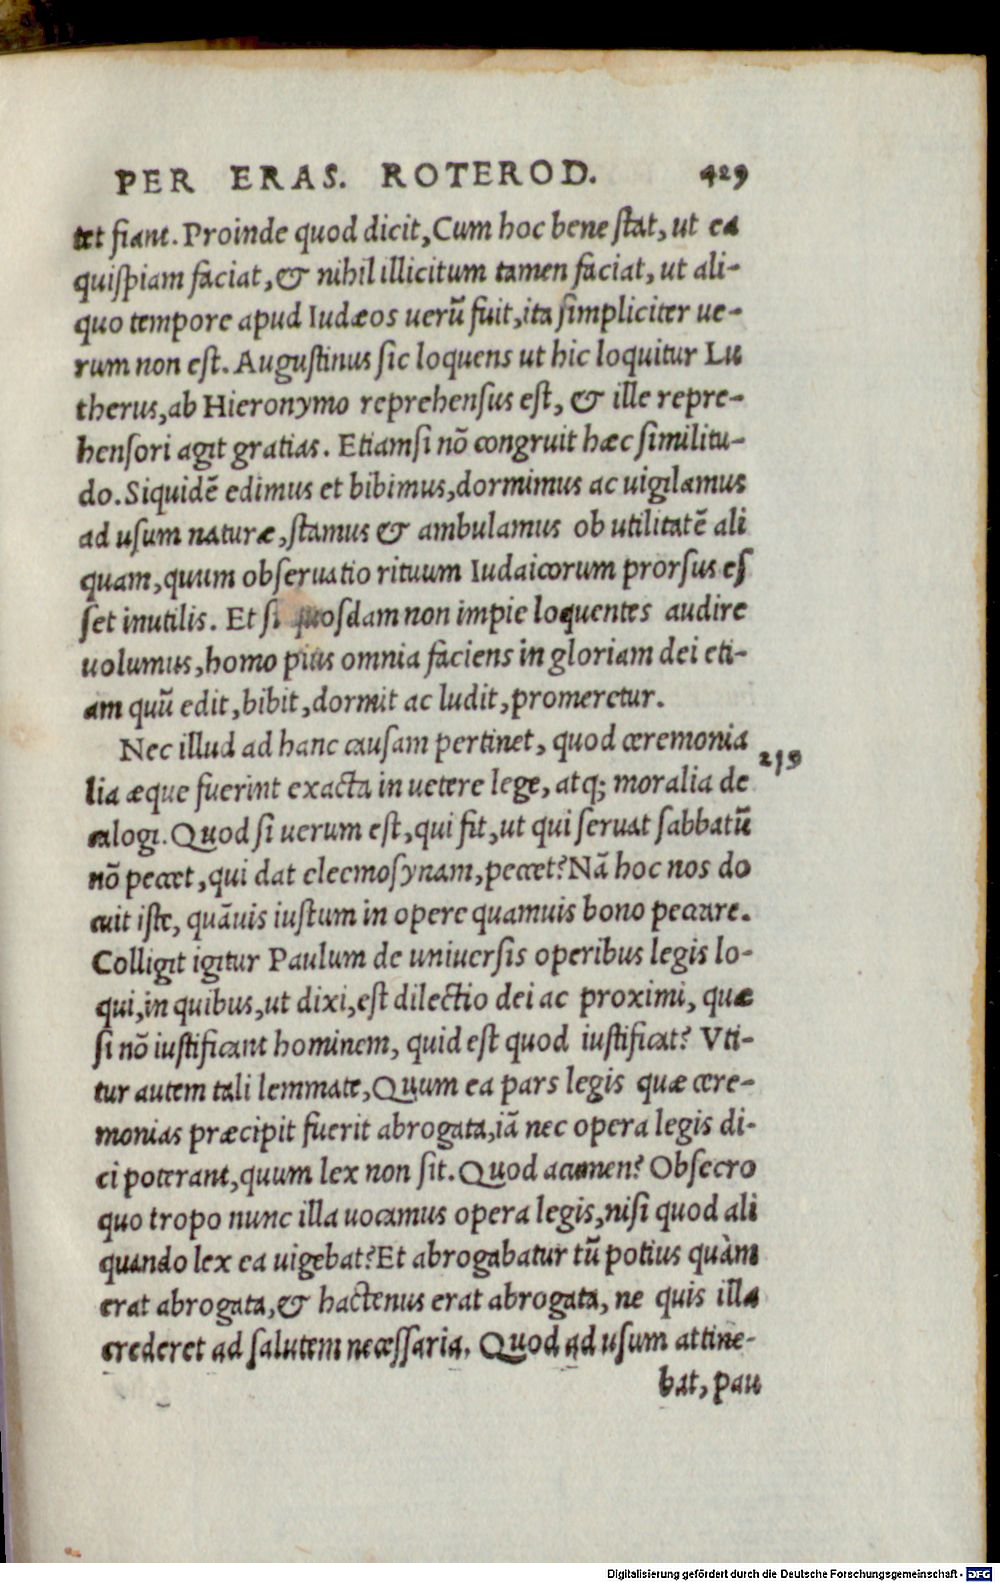 PER ERAS. ROTEROD. 429
tet fiant. Proinde quod dicit, Cum hoc bene stat, ut ea
quispiam faciat, & nihil illicitum tamen faciat, ut ali-
quo tempore apud Iudæos uerū fuit, ita simpliciter ue-
rum non est. Augustinus sic loquens ut hic loquitur Lu
therus, ab Hieronymo reprehensus est, & ille repre-
hensori agit gratias. Etiamsi nō congruit hæc similitu-
do. Siquidē edimus et bibimus, dormimus ac uigilamus
ad usum naturæ, stamus & ambulamus ob utilitatē ali
quam, quum obseruatio rituum Iudaicorum prorsus es
set inutilis. Et si quosdam non impie loquentes audire
uolumus, homo pius omnia faciens in gloriam dei eti-
am quū edit, bibit, dormit ac ludit, promeretur.
Nec illud ad hanc causam pertinet, quod ceremonia
219
lia æque fuerint exacta in uetere lege, atq; moralia de
calogi. Quod si uerum est, qui fit, ut qui seruat sabbatū
nō peccet, qui dat eleemosynam, peccet? Nā hoc nos do
cuit iste, quāuis iustum in opere quamuis bono peccare.
Colligit igitur Paulum de uniuersis operibus legis lo-
qui, in quibus, ut dixi, est dilectio dei ac proximi, quæ
si nō iustificant hominem, quid est quod iustificat? Vti-
tur autem tali lemmate, Quum ea pars legis quæ cere-
monias præcipit fuerit abrogata, iā nec opera legis di-
ci poterant, quum lex non sit. Quod acumen? Obsecro
quo tropo nunc illa uocamus opera legis, nisi quod ali
quando lex ea uigebat? Et abrogabatur tū potius quàm
erat abrogata, & hactenus erat abrogata, ne quis illa
crederet ad salutem necessaria. Quod ad usum attine-
bat, pau
Digitalisierung gefördert durch die Deutsche Forschungsgemeinschaft - DFG